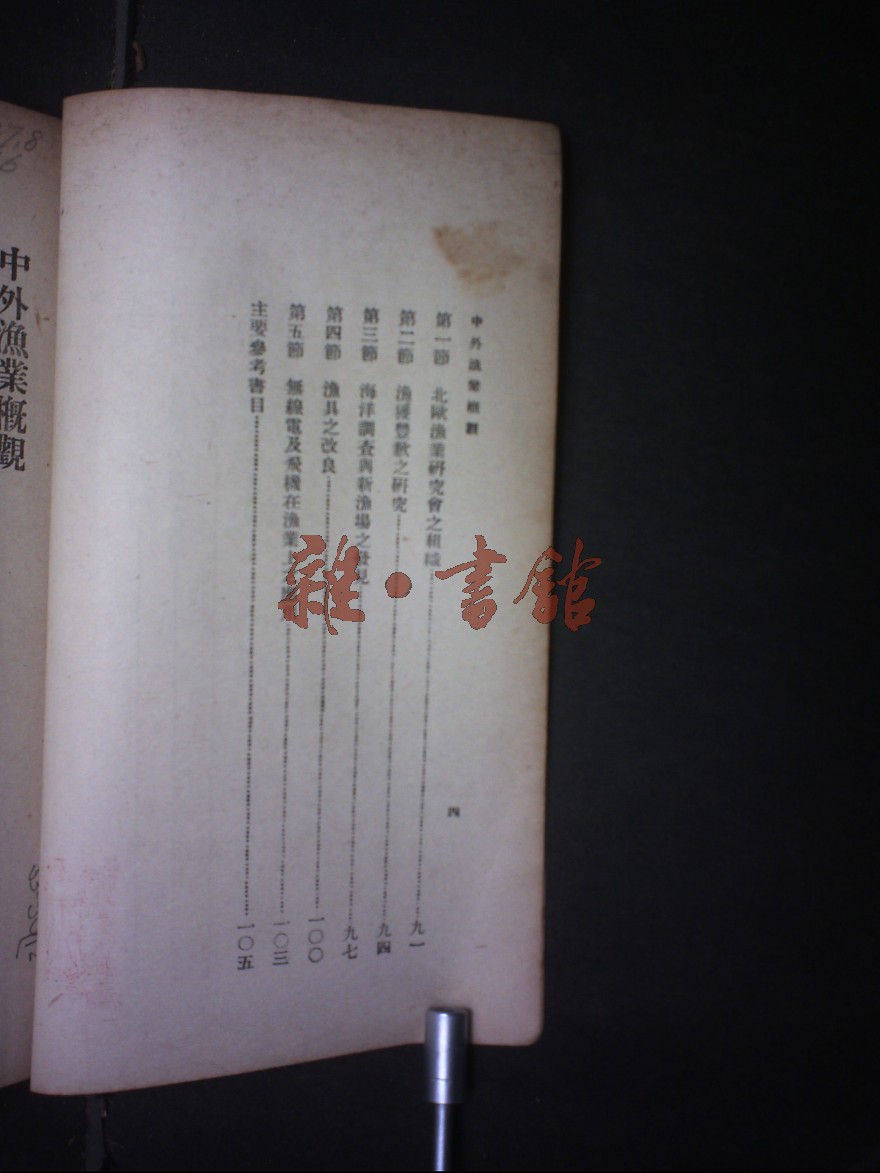 中外漁業概觀
四
第一節 北歐漁業研究會之組織 九一
第二節 漁獲豐歉之研究 九四
第三節 海洋調查與新漁場之發見 九七
第四節 漁具之改良 一〇〇
第五節 無線電及飛機在漁業上之 一〇三
主要參考書目 一〇五
中外漁業概觀
雜·書館